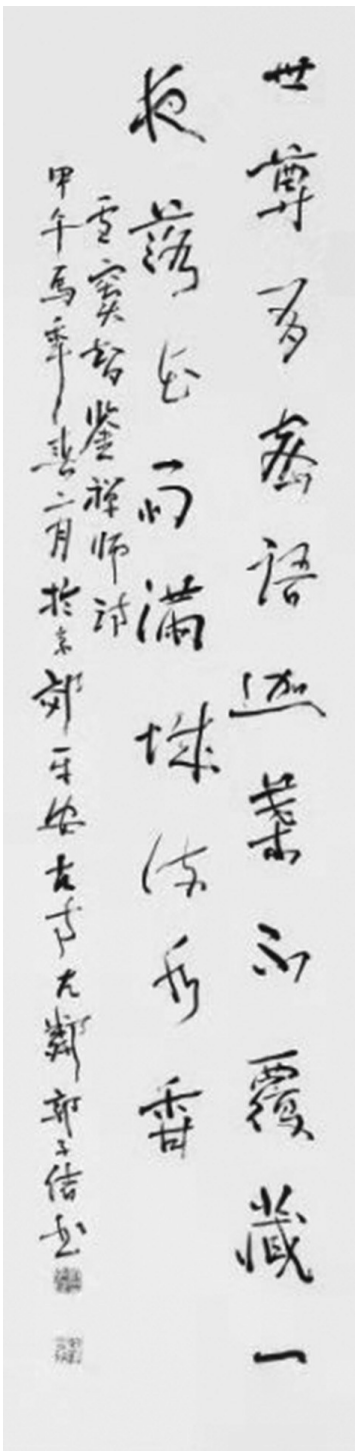 世尊有密語迦葉不覆藏一
夜落花雨滿城流水香
雪竇智鑒禪師詩
甲午馬年春二月於京郊平安古寺左鄰郭子信書